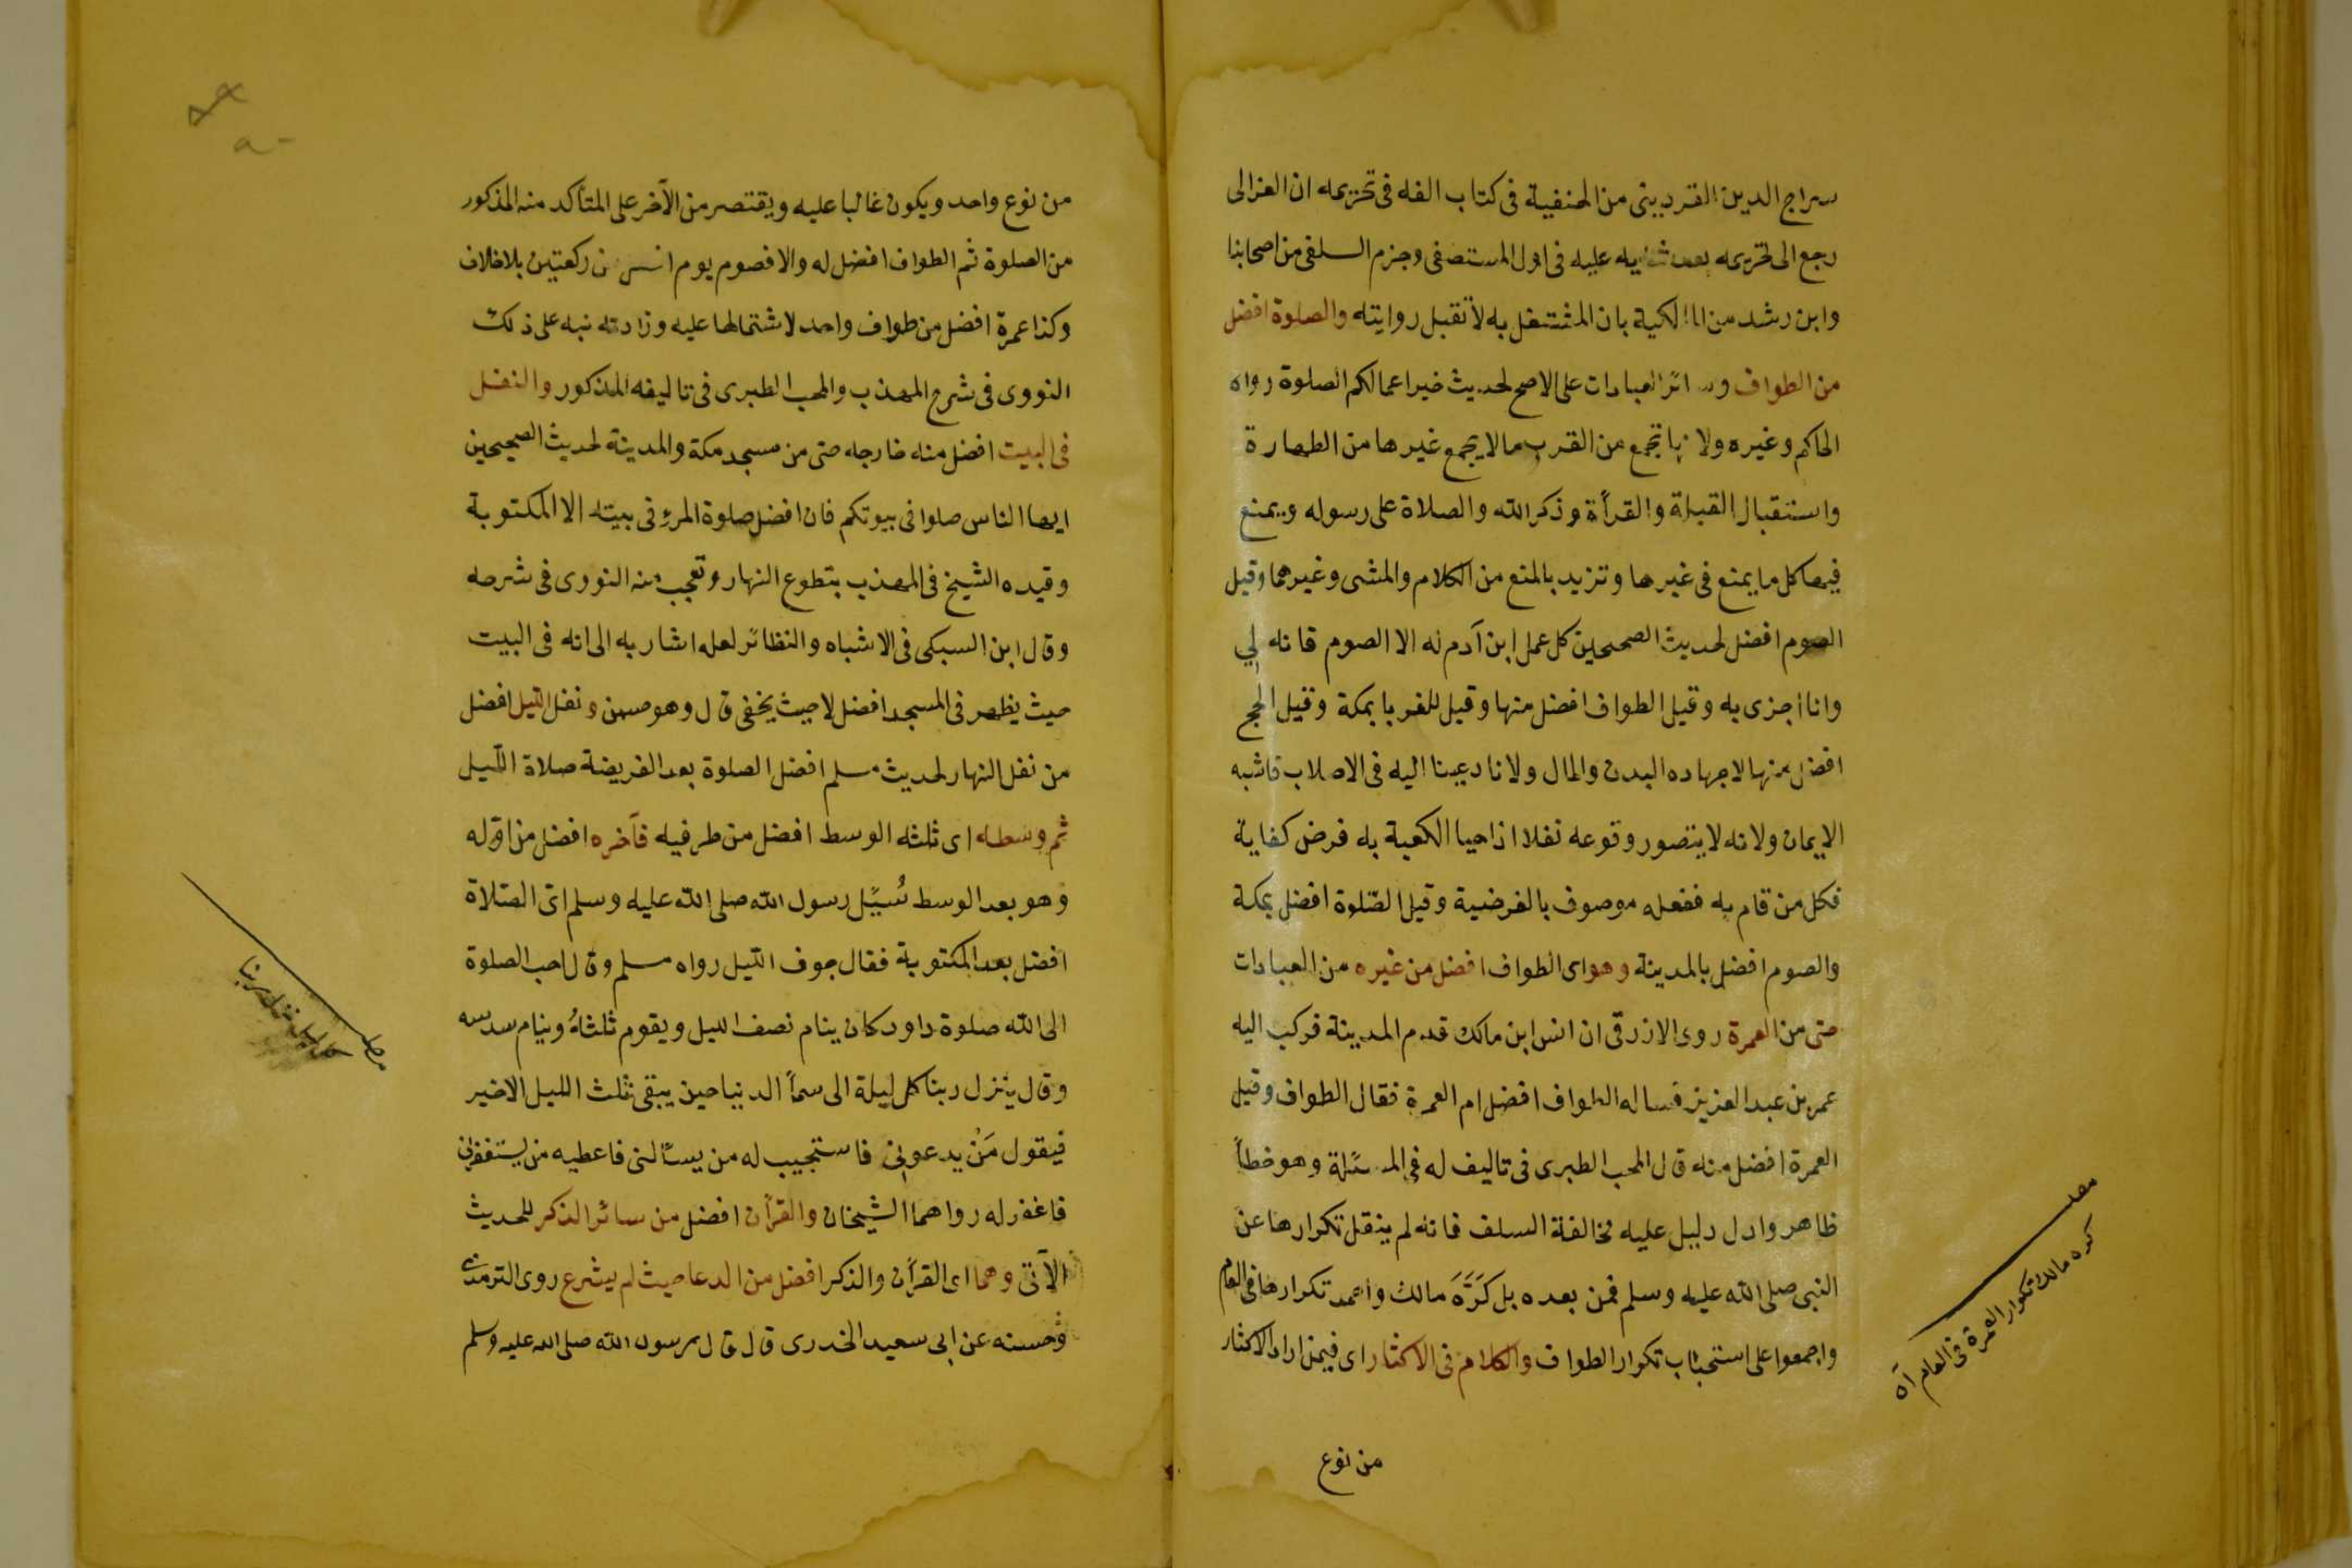 سراج الدين القزويني من الحنفية في كتاب الفه في تحريمه ان الغزالى
رجع الى تحريمه بعد ثنايه عليه فى اول المستصفى وجزم السلفى من اصحابنا
وابن رشد من المالكية بان المشتغل به لا تقبل روايته والصلوة افضل
من الطواف وسائر العبادات على الاصح لحديث خير اعمالكم الصلوة رواه
الحاكم وغيره ولانها تجمع من القرب ما لا يجمع غيرها من الطهارة
واستقبال القبلة والقرأة وذكر الله والصلاة على رسوله ويمنع
فيها كل ما يمنع فى غيرها وتزيد بالمنع من الكلام والمشى وغيرهما وقيل
الصوم افضل لحديث الصحيحين كل عمل ابن آدم له الا الصوم فانه لي
وانا اجزى به وقيل الطواف افضل منها وقيل للغربا بمكة وقيل الحج
افضل منها لاجهاده البدن والمال ولانا دعينا اليه فى الاصلاب فاشبه
الايمان ولانه لا يتصور وقوعه نفلا اذ احيا الكعبة به فرض كفاية
فكل من قام به ففعله موصوف بالفرضية وقيل الصّلوة افضل بمكة
والصوم افضل بالمدينة وهو اى الطواف افضل من غيره من العبادات
حتى من العمرة روى الازرقى ان انس ابن مالك قدم المدينة فركب اليه
عمر بن عبد العزيز فساله الطواف افضل ام العمرة فقال الطواف وقيل
العمرة افضل منه قال المحب الطبرى فى تاليف له فى المسئلة وهو خطأ
ظاهر وادل دليل عليه مخالفة السلف فانه لم ينقل تكرارها عن
النبى صلى الله عليه وسلم فمن بعده بل كَرَّهَ مالك واحمد تكرارها فى العام
واجمعوا على استحباب تكرار الطواف والكلام فى الاكثار اى فيمن اراد الاكثار
من نوع
مطلب
كره مالك تكرار العمرة فى العام آه
من نوع واحد ويكون غالبا عليه ويقتصر من الآخر على المتأكد منه المذكور
من الصلوة ثم الطواف افضل له والا فصوم يوم افضل من ركعتين بلا خلاف
وكذا عمرة افضل من طواف واحد لاشتمالها عليه وزادته نبه على ذلك
النووى فى شرح المهذب والمحب الطبرى فى تاليفه المذكور والنفل
فى البيت افضل منه خارجه حتى من مسجد مكة والمدينة لحديث الصحيحين
ايها الناس صلوا فى بيوتكم فان افضل صلوة المرء فى بيته الا المكتوبة
وقيده الشيخ فى المهذب بتطوع النهار وتعجب منه النووى فى شرحه
وقال ابن السبكى فى الاشباه والنظائر لعله اشار به الى انه فى البيت
حيث يظهر فى المسجد افضل لا حيث يخفى قال وهو حسن ونفل الليل افضل
من نفل النهار لحديث مسلم افضل الصلوة بعد الفريضة صلاة الليل
ثم وسطه اى ثلثه الوسط افضل من طرفيه فآخره افضل من اوّله
وهو بعد الوسط سُئِل رسول الله صلى الله عليه وسلم اى الصّلاة
افضل بعد المكتوبة فقال جوف الليل رواه مسلم وقال احب الصلوة
الى الله صلوة داود كان ينام نصف الليل ويقوم ثلثه وينام سدسه
وقال ينزل ربنا كل ليلة الى سمأ الدنيا حين يبقى ثلث الليل الاخير
فيقول مَنْ يدعونى فاستجيب له من يسألنى فاعطيه من يستغفرني
فاغفر له رواهما الشيخان والقرآن افضل من سائر الذكر للحديث
الآتى وهما اى القرآن والذكر افضل من الدعا حيث لم يشرع روى الترمذى
وحسنه عن ابى سعيد الخدرى قال قال رسول الله صلى الله عليه وسلم
مطلب